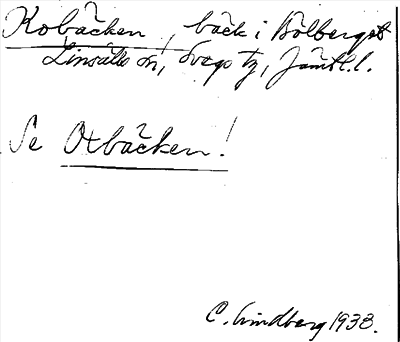 Kobäcken, bäck i Bölberget
Linsälls sn, Svegs tg, Jämtl. l.
Se Oxbäcken!
C. Lindberg 1938.